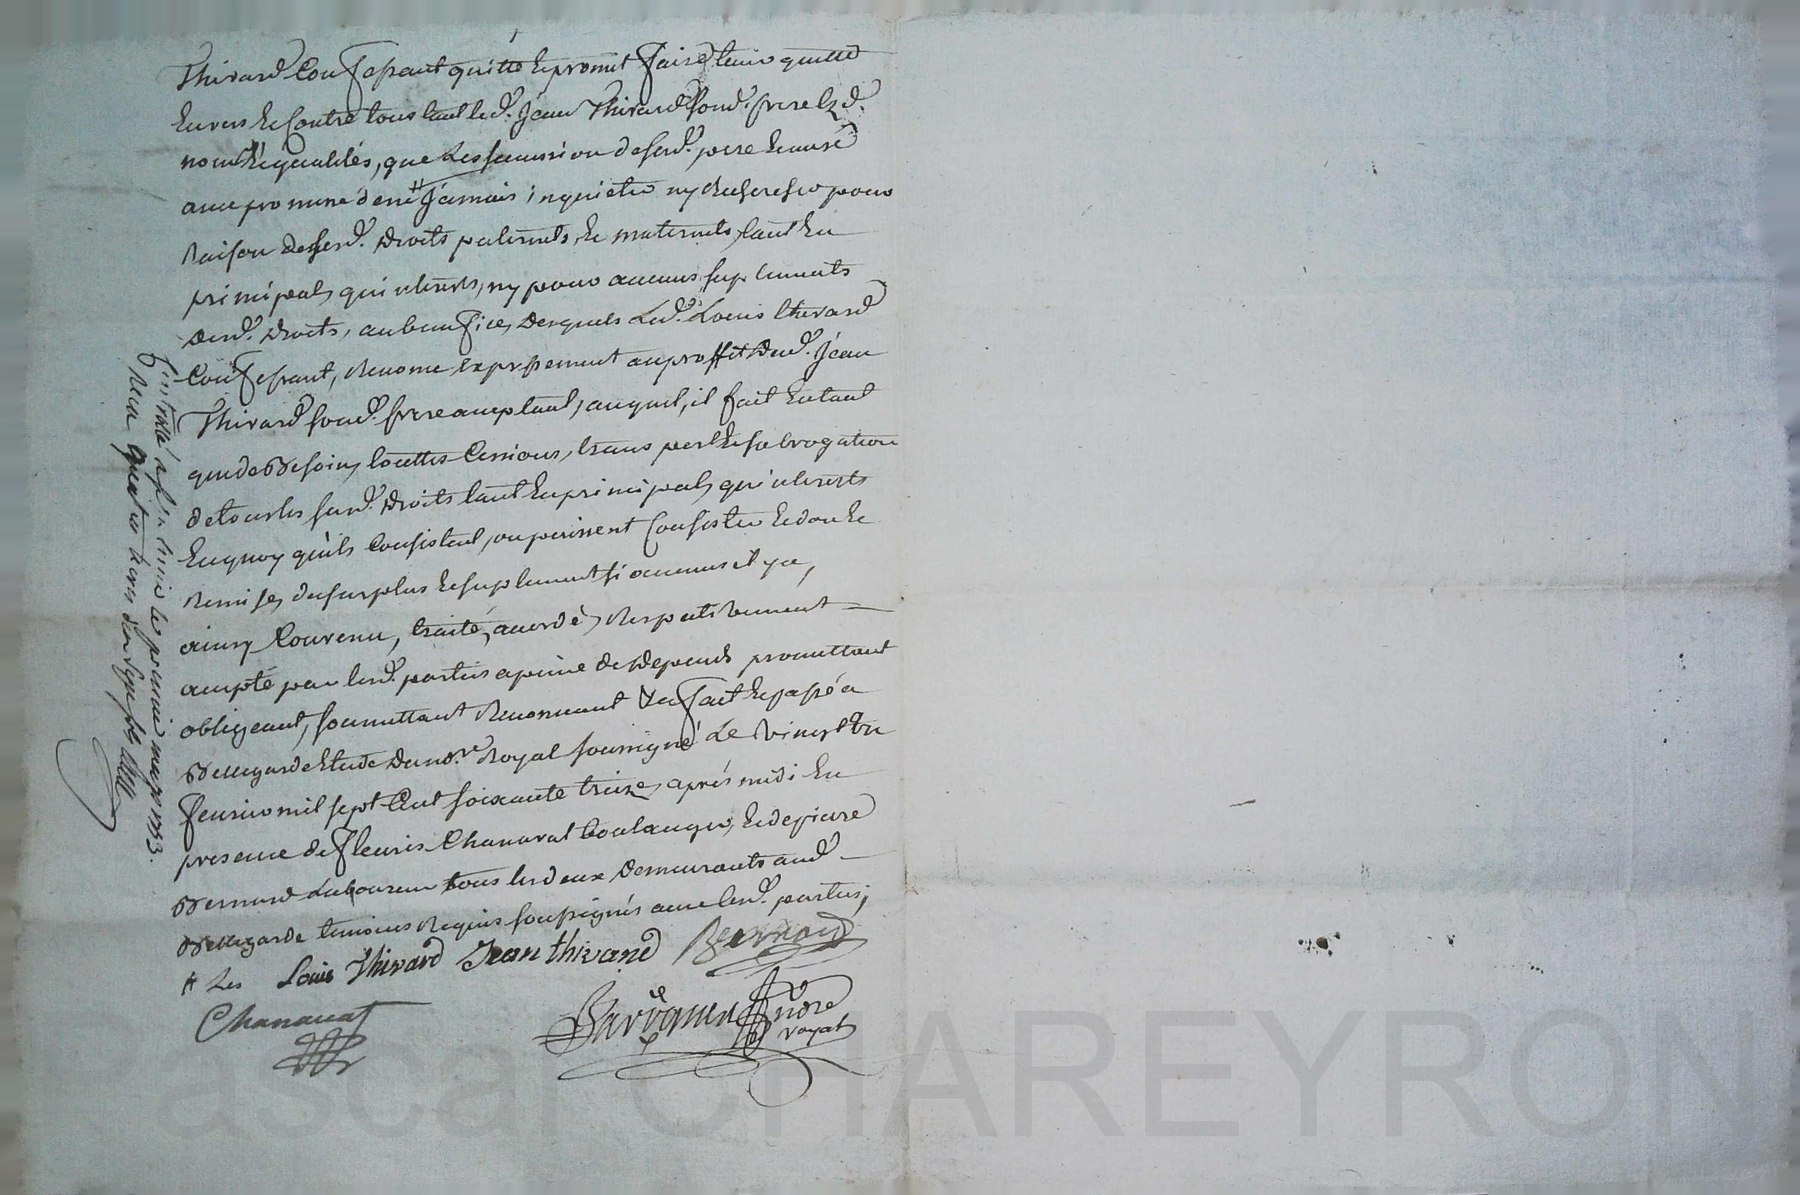 Thivard Confessant quitte Et promet faire tenir quitte
Envers Et Contre tous tant led. Jean Thivard Sond. frere Esd.
noms Et qualités, que Les succession de Serd. pere Et mere
avec promesse de ne # Jamais inquieter ny Rechercher pour
Raison desd. Droits paternels, Et maternels tant En
principals qu'interets, ny pour aucuns suplements
Desd. Droits, au benefices Desquels Led. Louis thivard
Confessant, Renonce Expressement au proffit Dud. Jean
Thivard Sond. frere acceptant, auquel, il fait En tant
que de Besoin, touttes Cessions, transports Et subrogation
de tous les susd. Droits tant En principals qu'interets
En quoy qu'ils Consistent, ou puissent Consister Et donne
Remises du surplus Et suplement si aucuns il y a,
ainsy Convenu, traité, accordé, Respectivement
accepté par lesd. parties a peine de Depends promettant
obligeant, soumettant Renonceant &a fait Et passé a
Bellegarde Etude Du no.re Royal soussigné Le vingt un
fevrier mil sept Cent soixante treize, aprés midi En
presence de fleuris Chanavat boulanger, Et de pierre
Bernard Laboureur tous les deux Demeurants aud.
Bellegarde temoins Requis soussignés avec lesd. parties;
# Les Louis Thivard Jean thivard Bernard
Chanavat
nore
royal
le premier mars 1773.
Reçu quatre livres
CHAREYRON